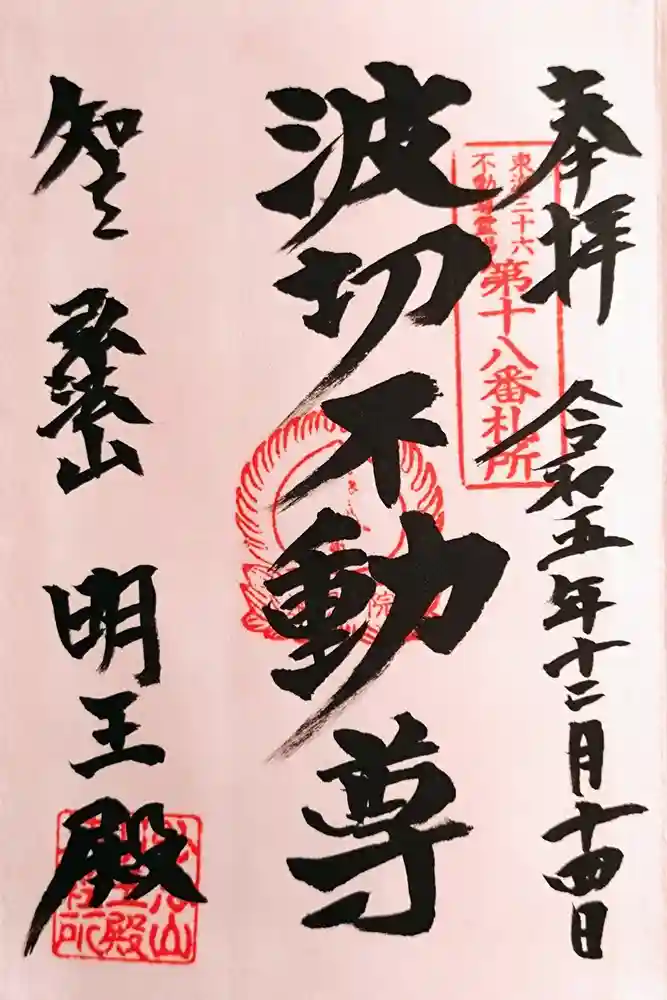 奉拝
令和五年十二月十四日
東海三十六
不動尊霊場
第十八番札所
波切不動尊
知多
弘法山
明王殿